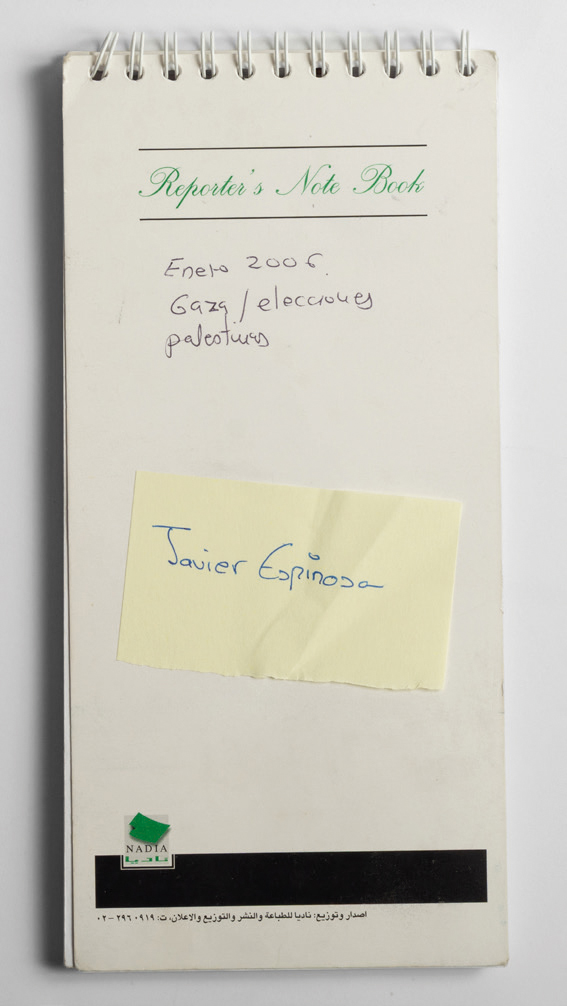 Reporter's Note Book
Enero 2006.
Gaza/elecciones
palestinas
Javier Espinosa
NADIA
ناديا
اصدار وتوزيع: ناديا للطباعة والنشر والتوزيع والاعلان، ت: ٠٩١٩ ٢٩٦ – ٠٢